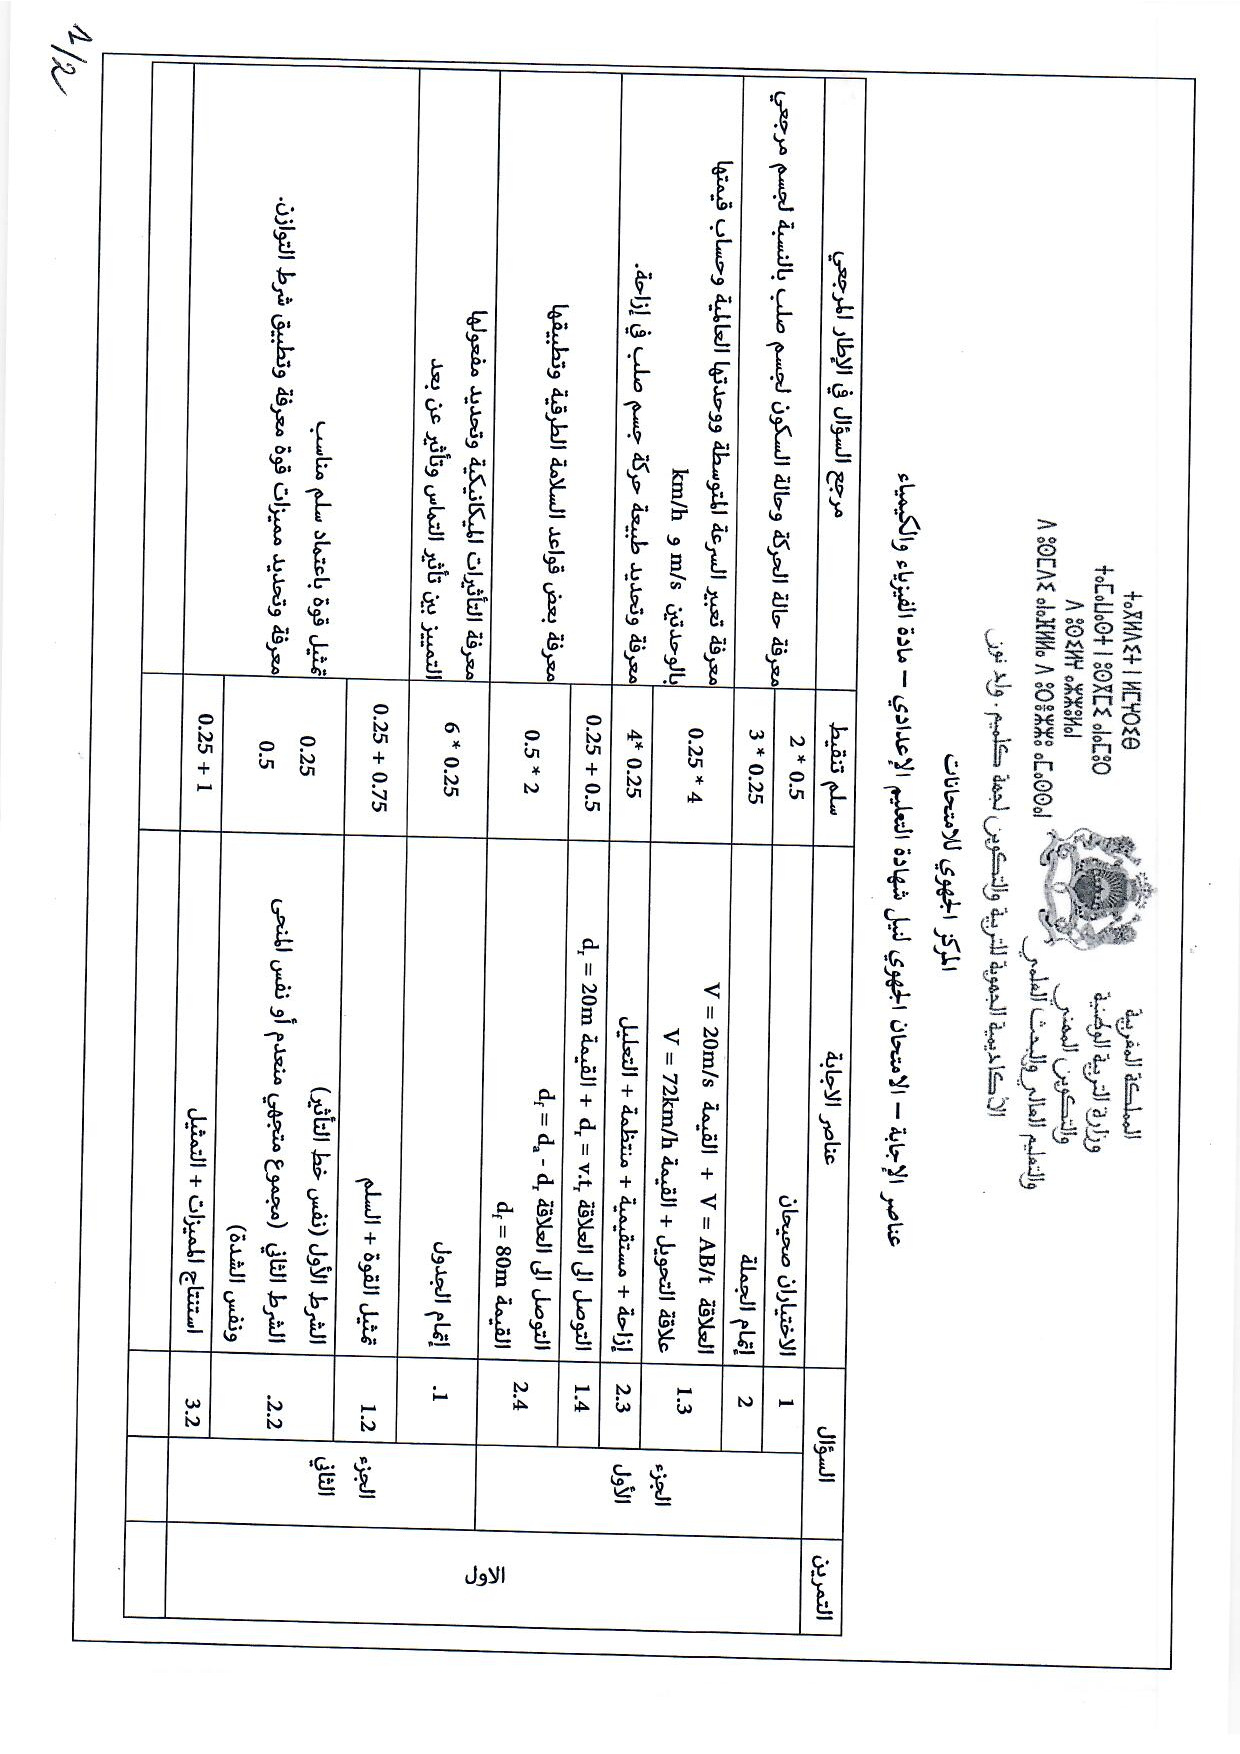 المملكة المغربية
وزارة التربية الوطنية
والتكوين المهني
والتعليم العالي والبحث العلمي
الأكاديمية الجهوية للتربية والتكوين لجهة كلميم ـ واد نون
ⵜⴰⴳⵍⴷⵉⵜ ⵏ ⵍⵎⵖⵔⵉⴱ
ⵜⴰⵎⴰⵡⴰⵙⵜ ⵏ ⵓⵙⴳⵎⵉ ⴰⵏⴰⵎⵓⵔ
ⴷ ⵓⵙⵎⵓⵜⵜⴳ ⴰⵣⵣⵓⵍⴰⵏ
المركز الجهوي للامتحانات
عناصر الإجابة – الامتحان الجهوي لنيل شهادة التعليم الإعدادي – مادة الفيزياء والكيمياء
التمرين السؤال عناصر الاجابة سلم تنقيط مرجع السؤال في الإطار المرجعي
الاول
الجزء الأول
1 الاختياران صحيحان 2 * 0.5 معرفة حالة الحركة وحالة السكون لجسم صلب بالنسبة لجسم مرجعي
2 إتمام الجملة 3 * 0.25
1.3 العلاقة V = AB/t + القيمة V = 20m/s
علاقة التحويل + القيمة V = 72km/h
0.25 * 4
معرفة تعبير السرعة المتوسطة ووحدتها العالمية وحساب قيمتها
بالوحدتين m/s و km/h
2.3 إزاحة + مستقيمية + منتظمة + التعليل 4* 0.25 معرفة وتحديد طبيعة حركة جسم صلب في إزاحة.
1.4 التوصل الى العلاقة dr = v.tr + القيمة dr = 20m 0.25 + 0.5
2.4 التوصل الى العلاقة df = da - dr
القيمة df = 80m
0.5 * 2
معرفة بعض قواعد السلامة الطرقية وتطبيقها
الجزء الثاني
1. إتمام الجدول 6 * 0.25
معرفة التأثيرات الميكانيكية وتحديد مفعولها
التمييز بين تأثير التماس وتأثير عن بعد
1.2 تمثيل القوة + السلم 0.25 + 0.75
2.2. الشرط الأول (نفس خط التأثير) 0.25
الشرط الثاني (مجموع متجهي منعدم أو نفس المنحى 0.5
ونفس الشدة)
تمثيل قوة باعتماد سلم مناسب
معرفة وتحديد مميزات قوة معرفة وتطبيق شرط التوازن.
3.2 استنتاج المميزات + التمثيل 0.25 + 1
1/2